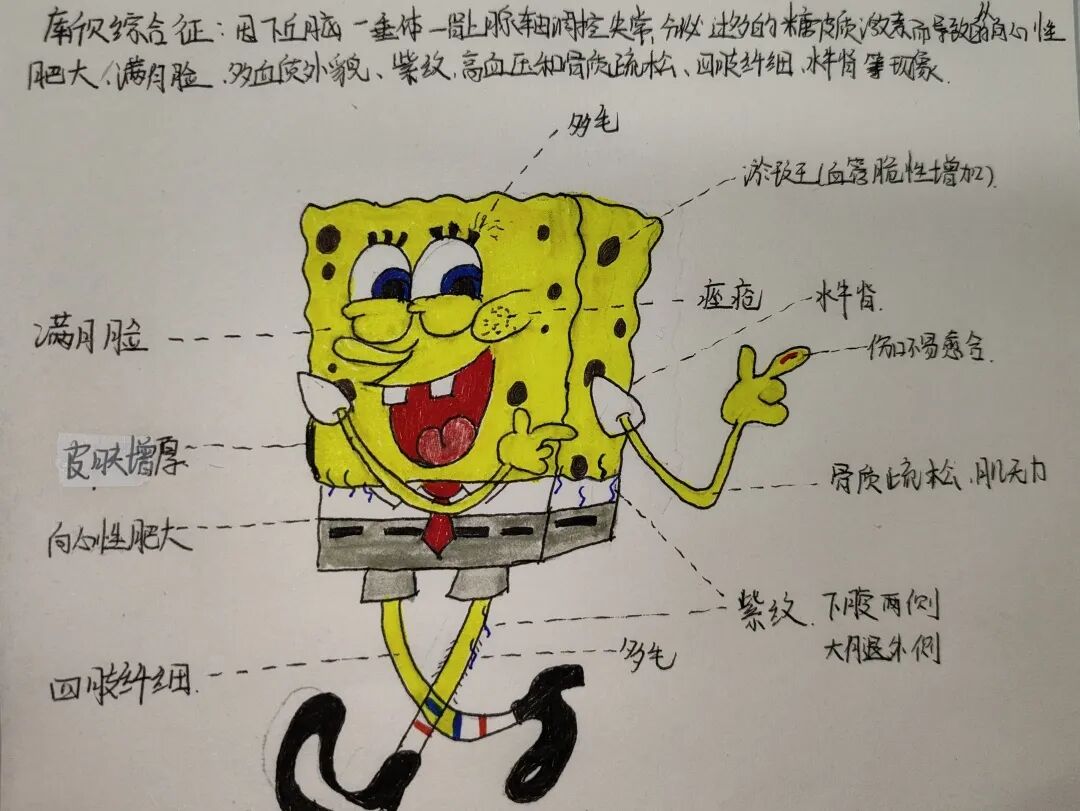 库欣综合征：因下丘脑—垂体—肾上腺轴调控失常，分泌过多的糖皮质激素而导致的向心性
肥大、满月脸、多血质外貌、紫纹、高血压和骨质疏松、四肢纤细、水牛背等现象.
多毛
淤斑(血管脆性增加)
痤疮
水牛背.
满月脸
伤口不易愈合.
皮肤增厚
骨质疏松、肌无力
向心性肥大
紫纹. 下腹两侧
大腿外侧
多毛
四肢纤细.